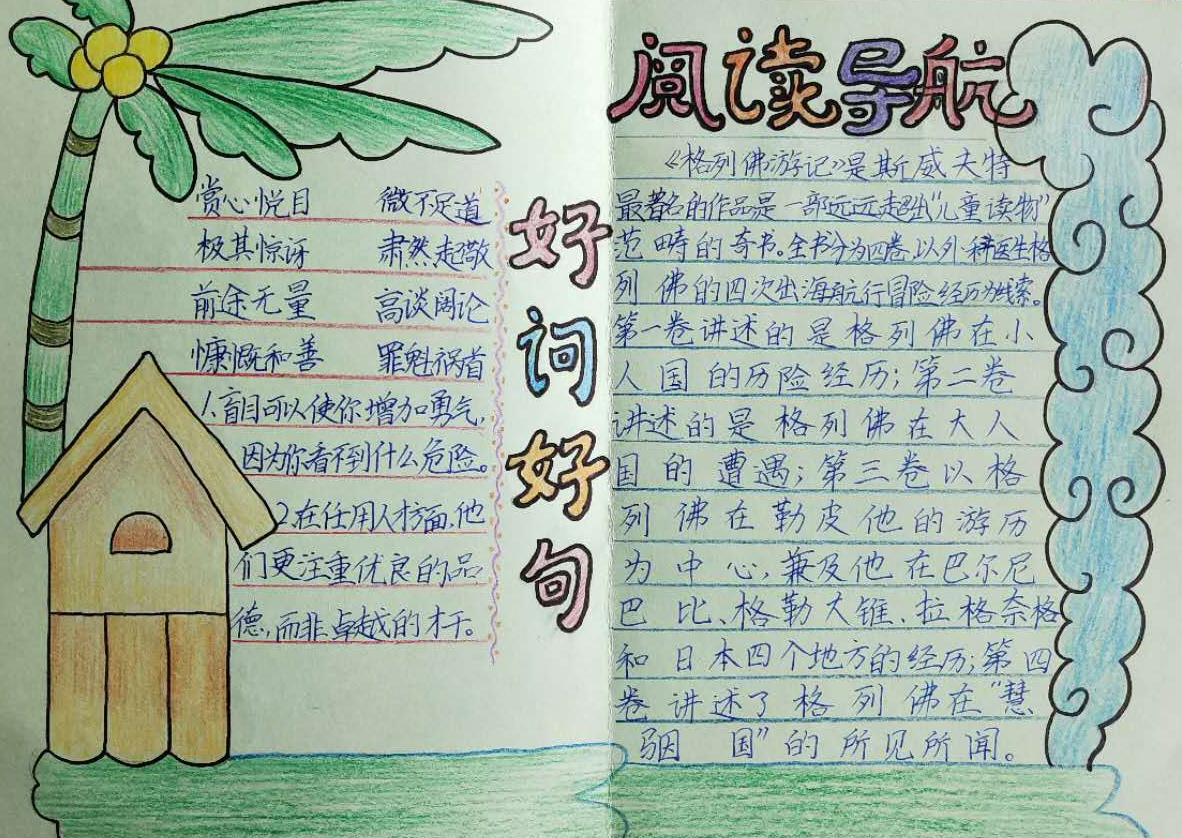 赏心悦目 微不足道
极其惊讶 肃然起敬
前途无量 高谈阔论
慷慨和善 罪魁祸首
1.盲目可以使你增加勇气,
因为你看不到什么危险。
2.在任用人才方面,他
们更注重优良的品
德,而非卓越的才干。
好词好句
阅读导航
《格列佛游记》是斯威夫特
最著名的作品是一部远远超出“儿童读物”
范畴的奇书。全书分为四卷,以外科医生格
列佛的四次出海航行冒险经历为线索。
第一卷讲述的是格列佛在小
人国的历险经历;第二卷
讲述的是格列佛在大人
国的遭遇;第三卷以格
列佛在勒皮他的游历
为中心,兼及他在巴尔尼
巴比、格勒大锥、拉格奈格
和日本四个地方的经历;第四
卷讲述了格列佛在“慧
骃国”的所见所闻。